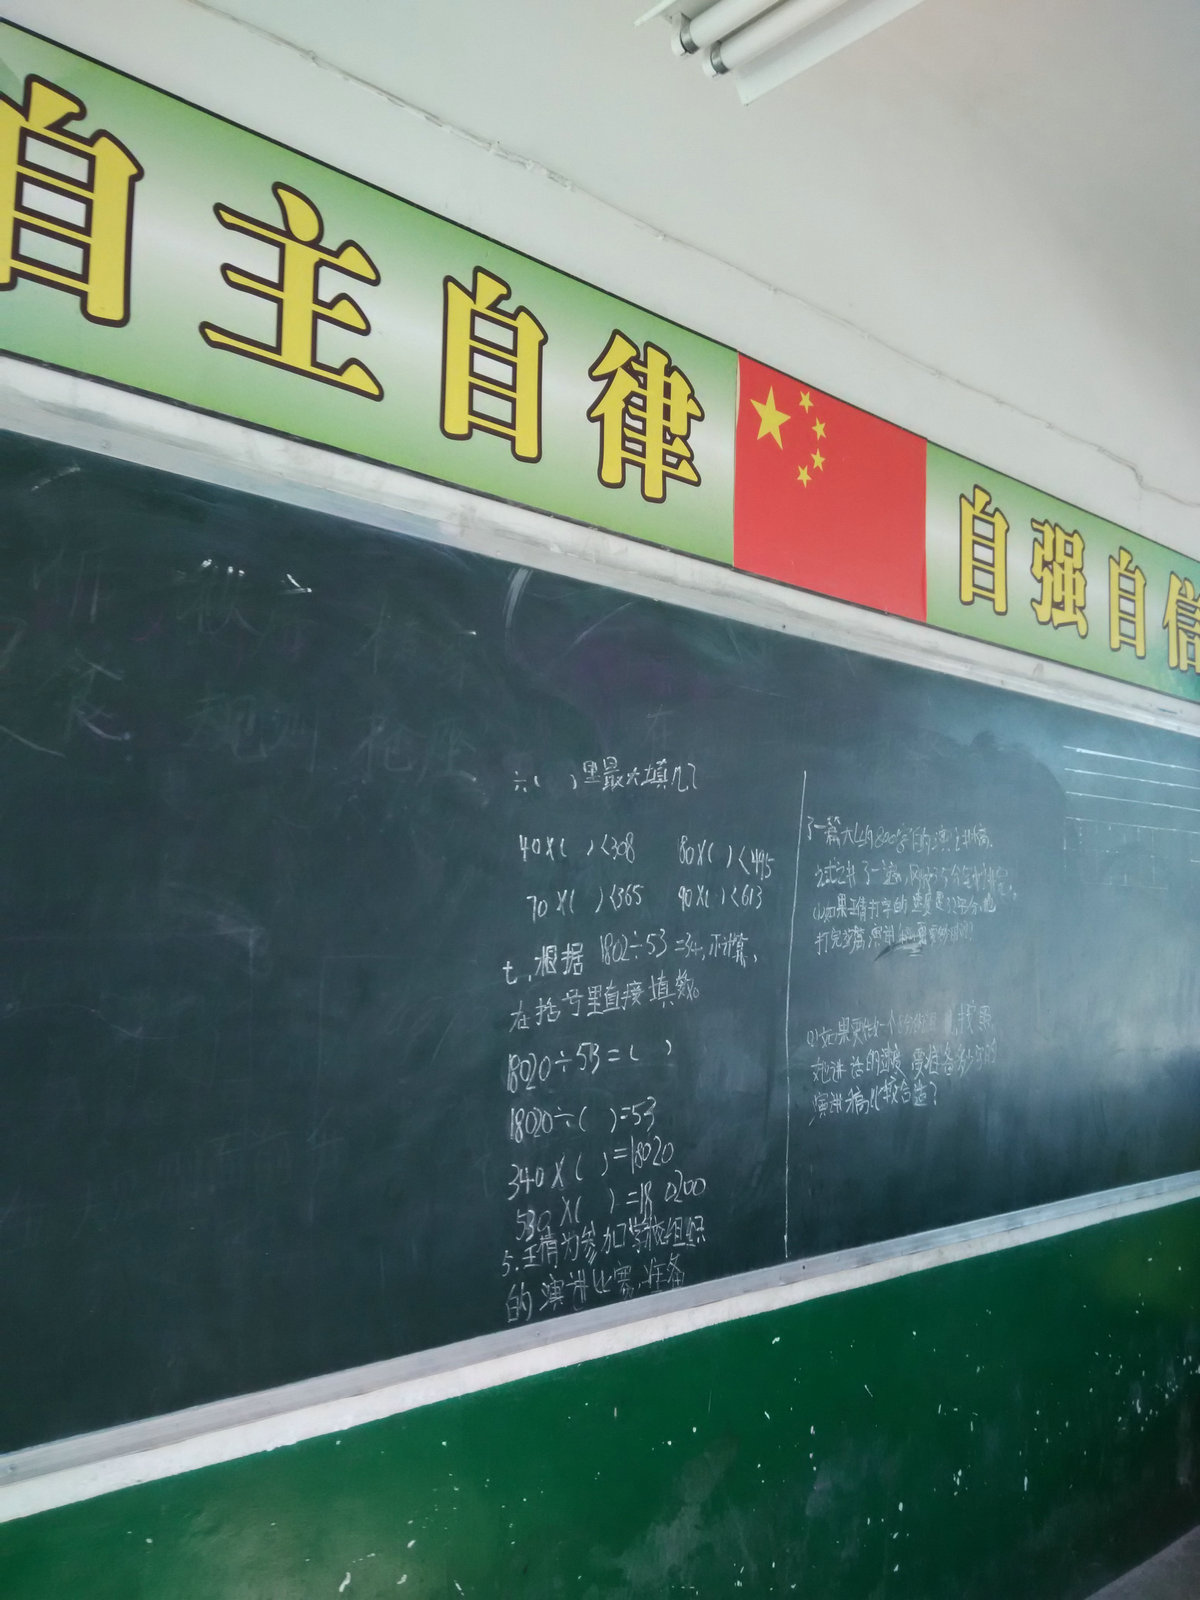 自主自律
自强自信
六( )里最大填几?
40×( )<308 80×( )<495
70×( )<365 90×( )<613
七.根据1802÷53=34,不计算,
在括号里直接填数。
18020÷53=( )
18020÷( )=53
340×( )=18020
530×( )=180200
5.王倩为参加学校组织
的演讲比赛,准备
了一篇大约800字的演讲稿,
(1)如果王倩打字的速度是32字/分,她
(2)如果要做一个
她讲话的速度,要准备多少字的
演讲稿比较合适?